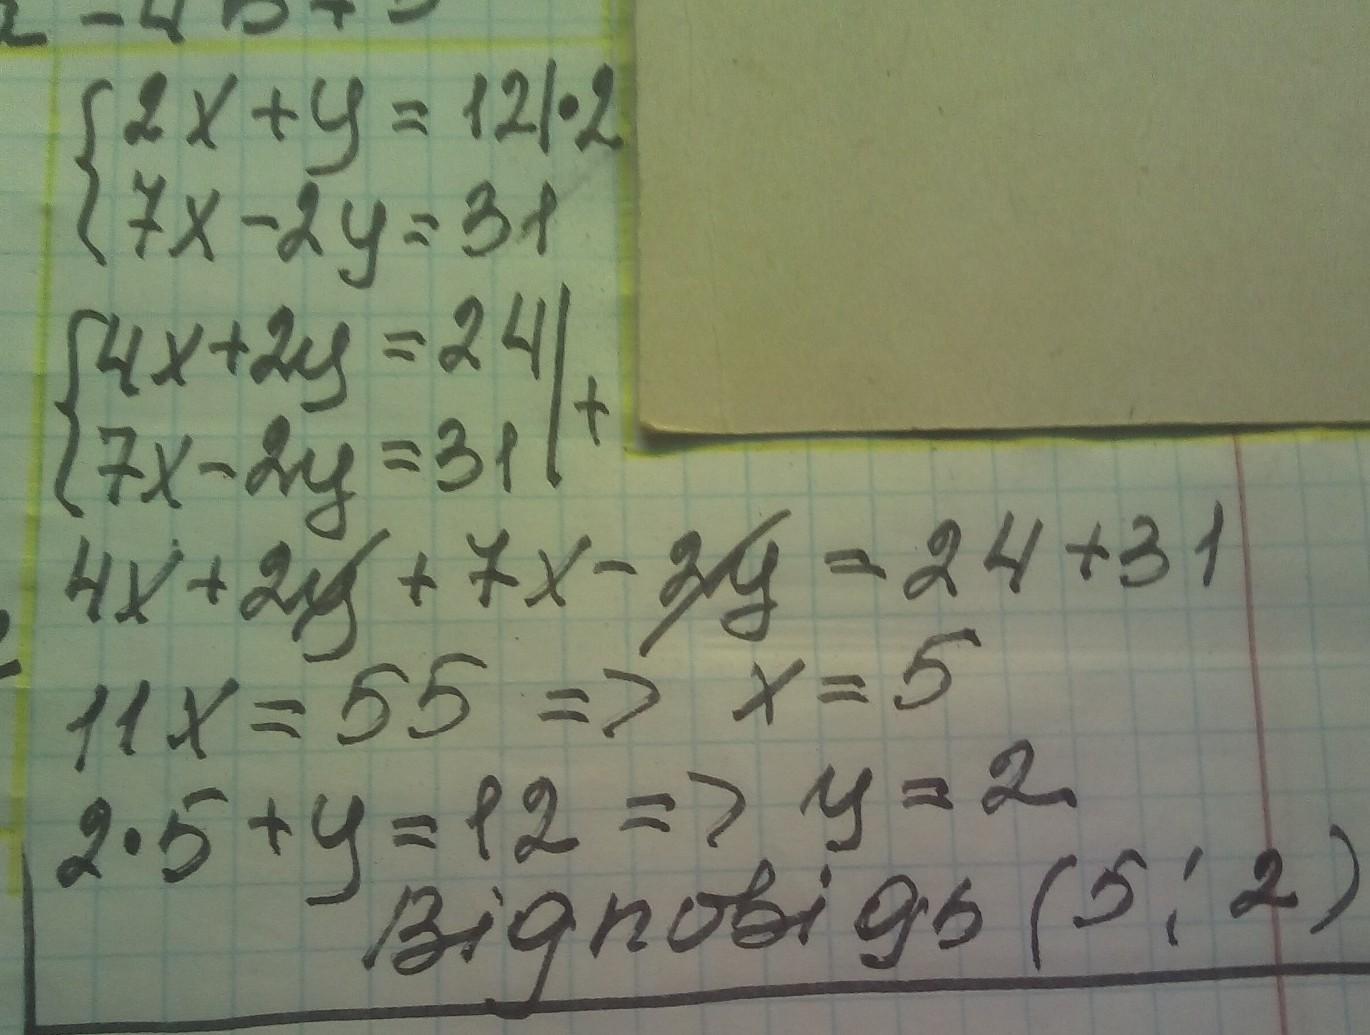 2x+y=12|•2
7x-2y=31
4x+2y=24|+
7x-2y=31
4x+2y+7x-2y=24+31
11x=55 => x=5
2•5+y=12 => y=2
Відповідь (5; 2)